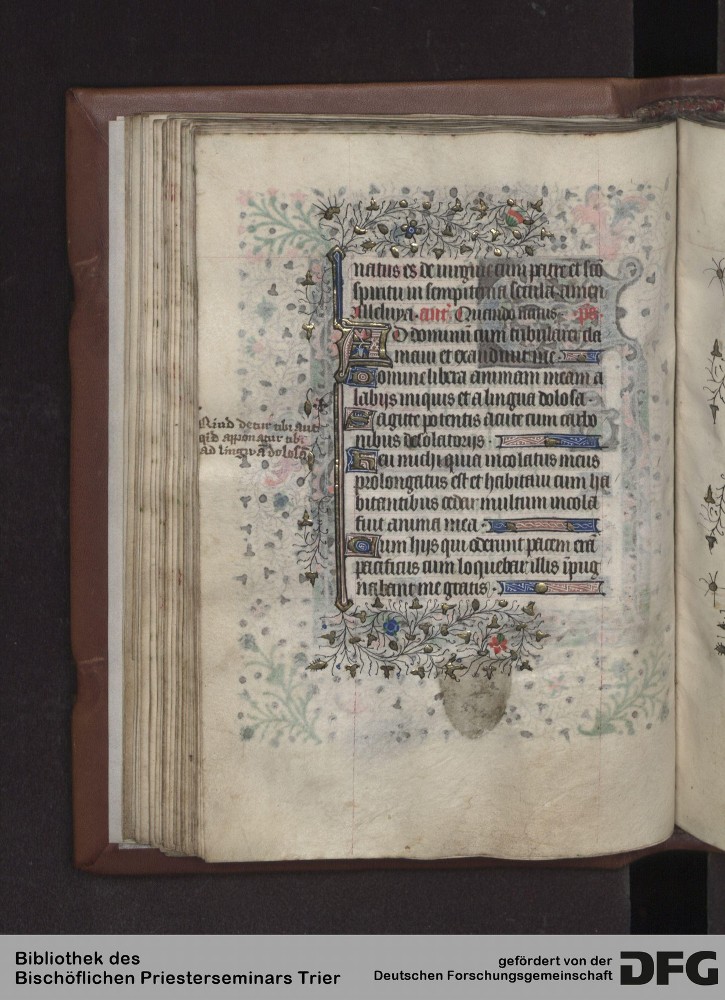 natus es de virgine cum patre et sco
spiritu in sempiterna secula amen
Alleluya. ant. Quando natus. ps.
Ad dominum cum tribularer cla
maui et exaudiuit me.
Domine libera animam meam a
labijs iniquis et a lingua dolosa.
Sagitte potentis acute cum carbo
nibus desolatorijs.
Heu michi quia incolatus meus
prolongatus est et habitaui cum ha
bitantibus cedar multum incola
fuit anima mea.
Cum hijs qui oderunt pacem erā
pacificus cum loquebar illis īpug
nabant me gratis.
Quid detur tibi aut
qid apponatur tibi
ad lingvā dolosā
Bibliothek des
Bischöflichen Priesterseminars Trier
gefördert von der
Deutschen Forschungsgemeinschaft
DFG